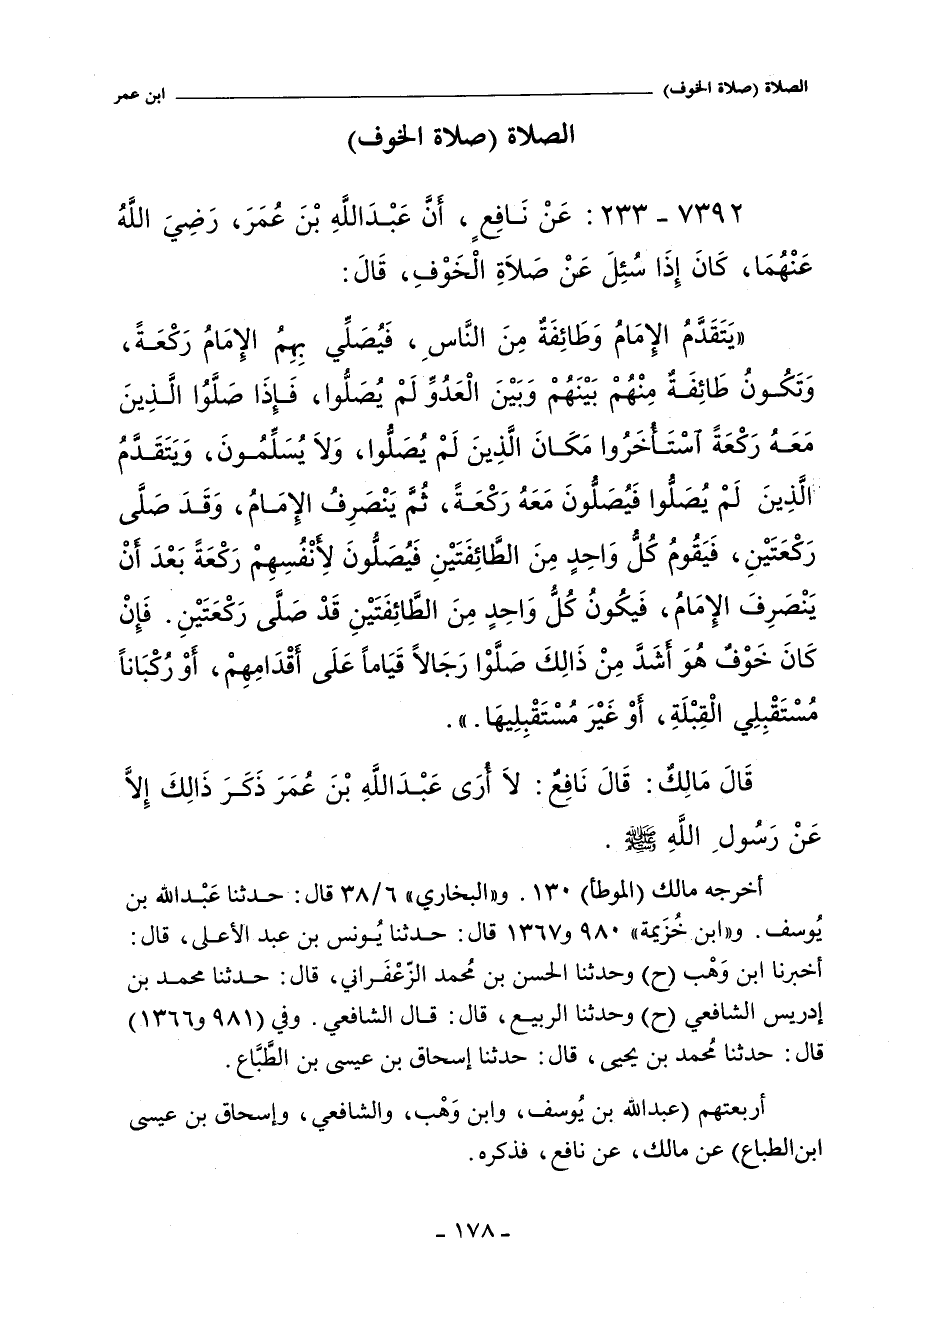 الصلاة (صلاة الخوف) ابن عمر
الصلاة (صلاة الخوف)
٧٣٩٢ - ٢٣٣: عَنْ نَافِعٍ، أَنَّ عَبْدَاللَّهِ بْنَ عُمَرَ، رَضِيَ اللَّهُ
عَنْهُمَا، كَانَ إِذَا سُئِلَ عَنْ صَلاَةِ الْخَوْفِ، قَالَ:
«يَتَقَدَّمُ الإِمَامُ وَطَائِفَةٌ مِنَ النَّاسِ، فَيُصَلِّي بِهِمُ الإِمَامُ رَكْعَةً،
وَتَكُونُ طَائِفَةٌ مِنْهُمْ بَيْنَهُمْ وَبَيْنَ الْعَدُوِّ لَمْ يُصَلُّوا، فَإِذَا صَلَّوُا الَّذِينَ
مَعَهُ رَكْعَةً ٱسْتَأْخَرُوا مَكَانَ الَّذِينَ لَمْ يُصَلُّوا، وَلاَ يُسَلِّمُونَ، وَيَتَقَدَّمُ
الَّذِينَ لَمْ يُصَلُّوا فَيُصَلُّونَ مَعَهُ رَكْعَةً، ثُمَّ يَنْصَرِفُ الإِمَامُ، وَقَدَ صَلَّى
رَكْعَتَيْنِ، فَيَقُومُ كُلُّ وَاحِدٍ مِنَ الطَّائِفَتَيْنِ فَيُصَلُّونَ لِأَنْفُسِهِمْ رَكْعَةً بَعْدَ أَنْ
يَنْصَرِفَ الإِمَامُ، فَيَكُونُ كُلُّ وَاحِدٍ مِنَ الطَّائِفَتَيْنِ قَدْ صَلَّى رَكْعَتَيْنِ. فَإِنْ
كَانَ خَوْفٌ هُوَ أَشَدَّ مِنْ ذَالِكَ صَلَّوْا رِجَالاً قِيَاماً عَلَى أَقْدَامِهِمْ، أَوْ رُكْبَاناً
مُسْتَقْبِلِي الْقِبْلَةِ، أَوْ غَيْرَ مُسْتَقْبِلِيهَا.».
قَالَ مَالِكٌ: قَالَ نَافِعٌ: لاَ أُرَى عَبْدَاللَّهِ بْنَ عُمَرَ ذَكَرَ ذَالِكَ إِلاَّ
عَنْ رَسُولِ اللَّهِ ﷺ.
أخرجه مالك (الموطأ) ١٣٠. و«البخاري» ٣٨/٦ قال: حدثنا عَبْدالله بن
يُوسف. و«ابن خُزَيمة» ٩٨٠ و١٣٦٧ قال: حدثنا يُونس بن عبد الأعلى، قال:
أخبرنا ابن وَهْب (ح) وحدثنا الحسن بن مُحمد الزّعْفَراني، قال: حدثنا محمد بن
إدريس الشافعي (ح) وحدثنا الربيع، قال: قال الشافعي. وفي (٩٨١ و١٣٦٦)
قال: حدثنا مُحمد بن يحيى، قال: حدثنا إسحاق بن عيسى بن الطَّبَّاع.
أربعتهم (عبدالله بن يُوسف، وابن وَهْب، والشافعي، وإسحاق بن عيسى
ابن الطباع) عن مالك، عن نافع، فذكره.
- ١٧٨ -